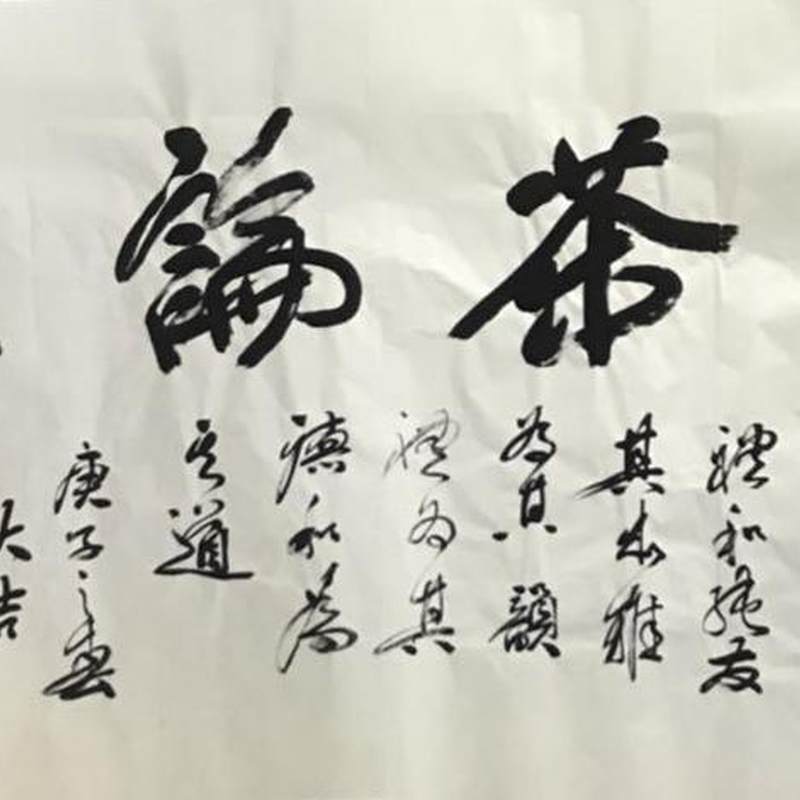 茶論
禮和
其 雅
為其韻
禮為其
德和為
之道
庚子之春
大吉